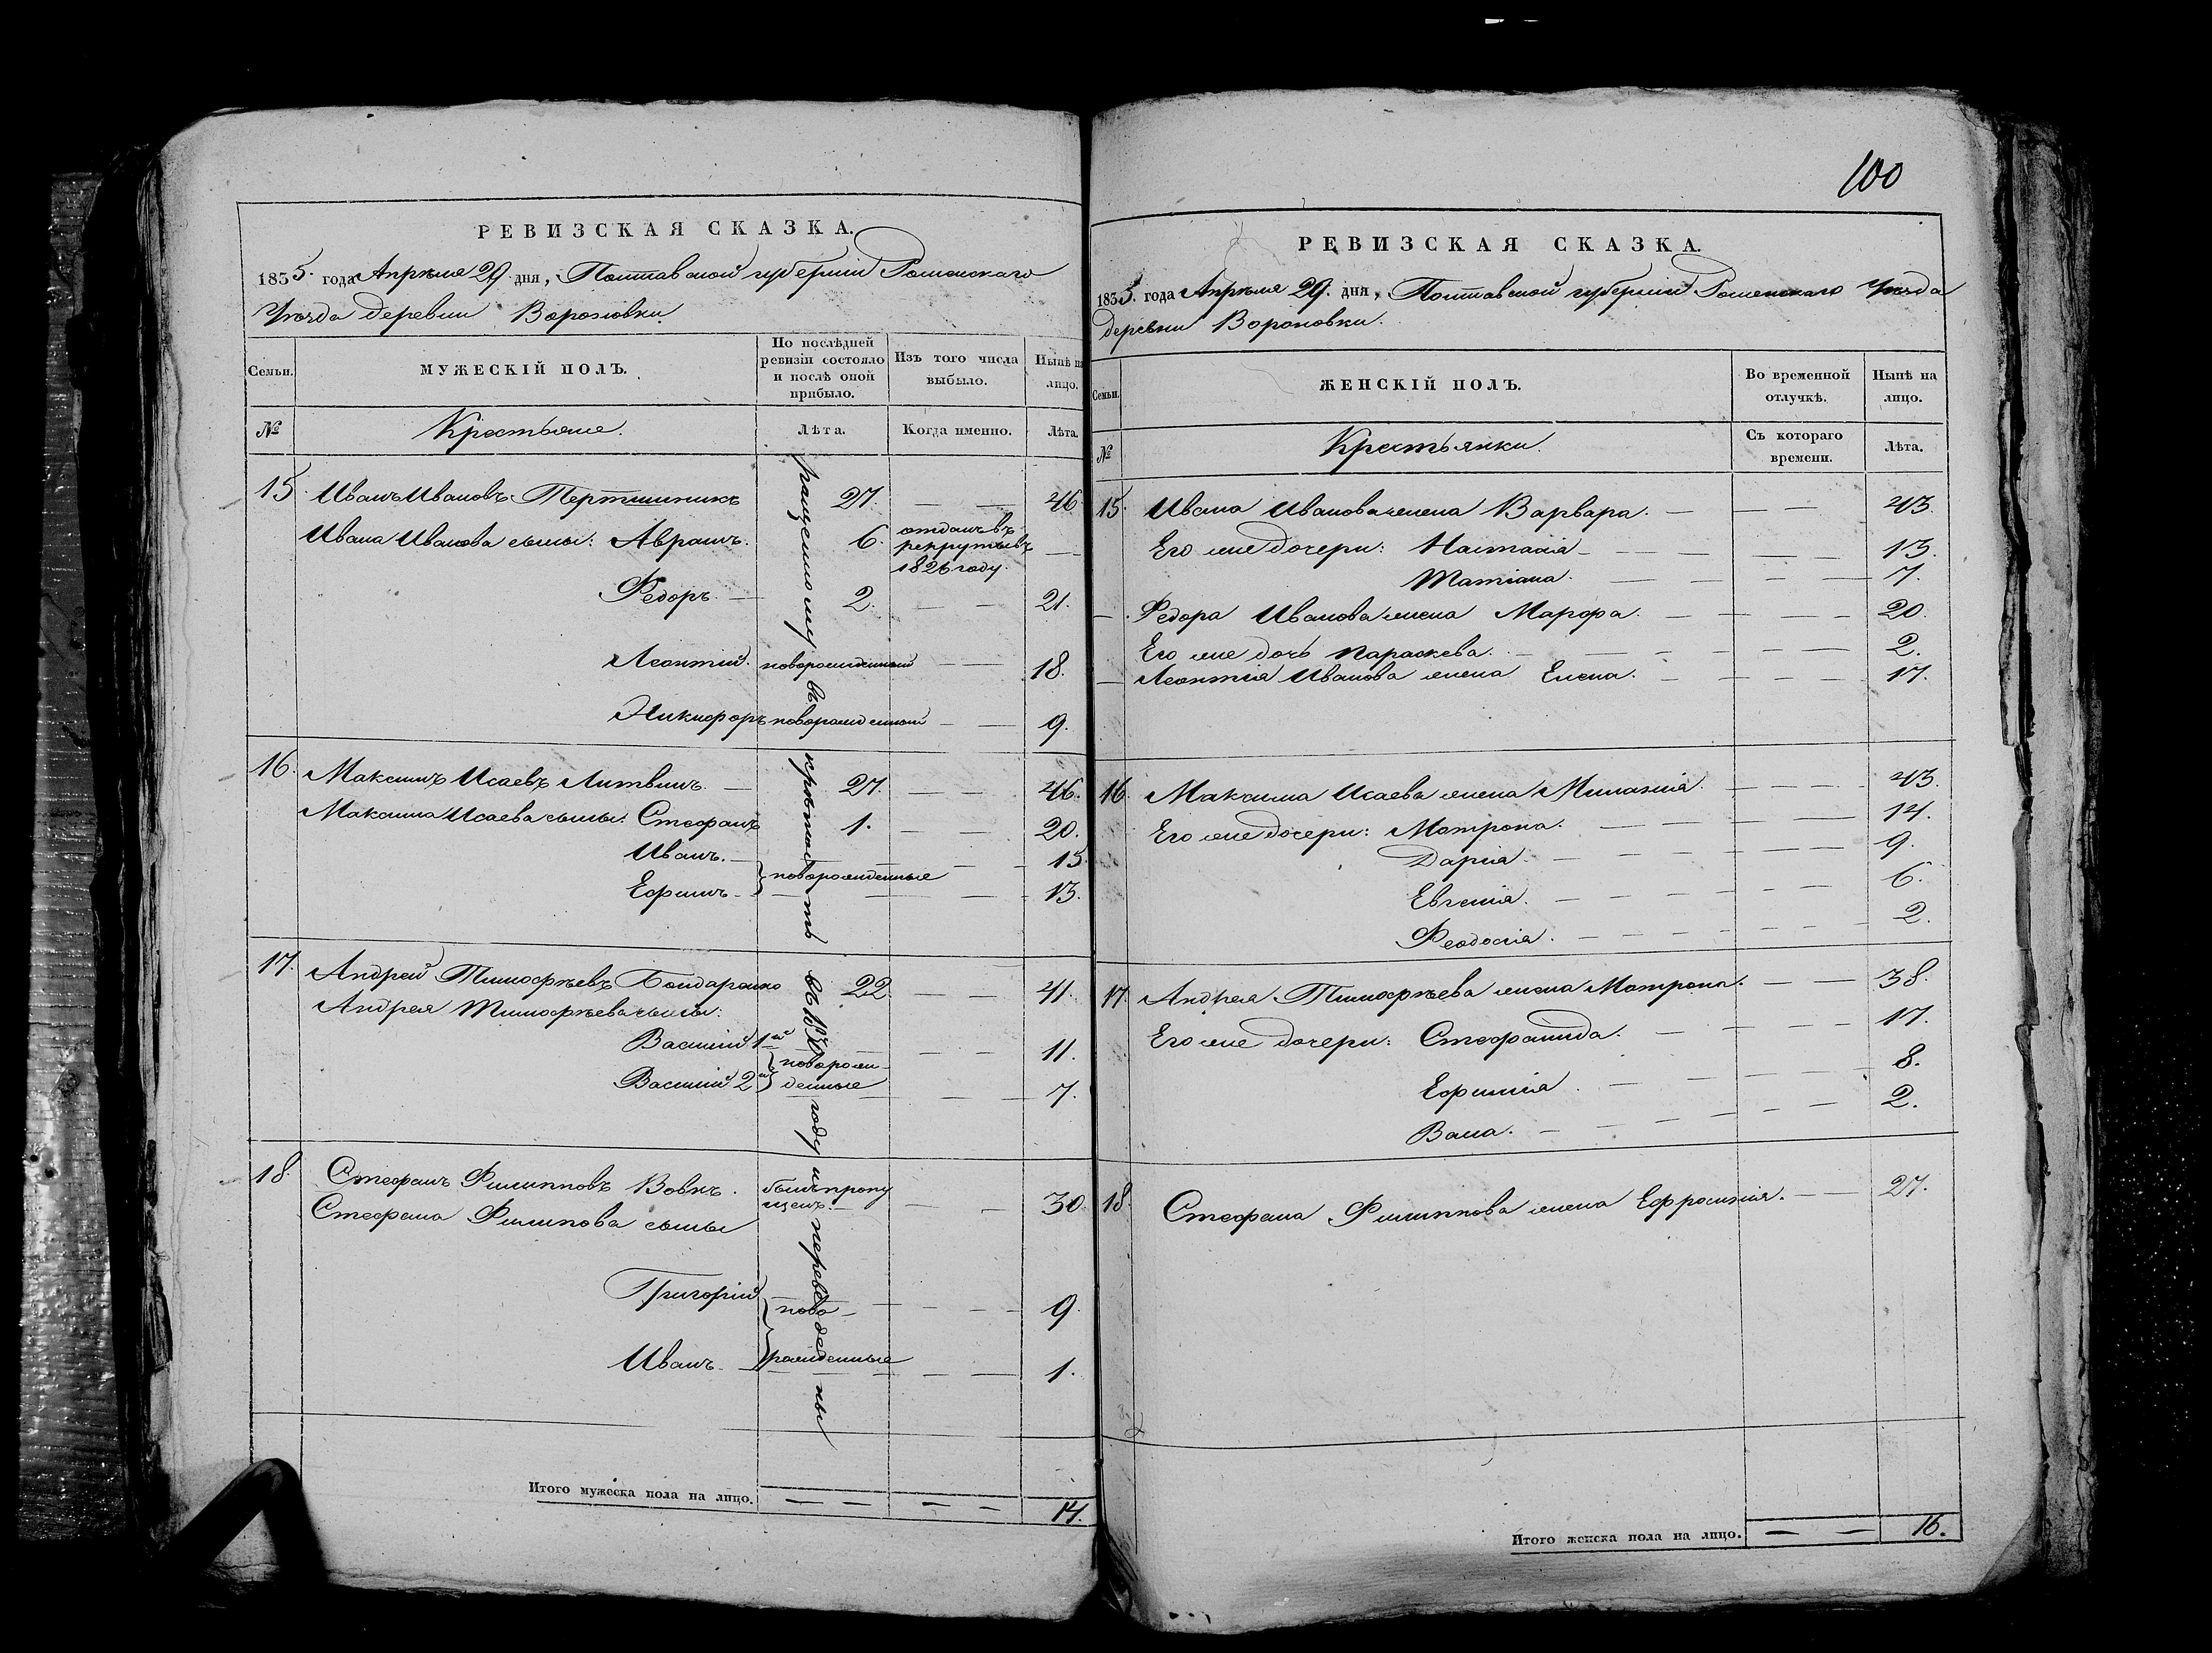 РЕВИЗСКАЯ СКАЗКА.
1835. года Апрѣля 29 дня, Полтавской губерніи Роменскаго
Уѣзда деревни Вороновки
Семьи.
МУЖЕСКІЙ ПОЛЪ.
По послѣдней ревизіи состояло и послѣ оной прибыло.
Изъ того числа выбыло.
Нынѣ на лицо.
№
Крестьяне.
Лѣта.
Когда именно.
Лѣта.
15 Иванъ Ивановъ Тертишникъ 27. — — 46.
Ивана Иванова сыны: Аврамъ. 6. отданъ въ рекруты въ 1826 году. —
Федоръ. — 2. — — 21.
Леонтій. новорожденный — — 18.
Никифоръ новорожденный — — 9.
16. Максимъ Исаевъ Литвинъ. — 27. — — 46.
Максима Исаева сыны: Стефанъ 1. — — 20.
Иванъ. — — — 15
новорожденные
Ефимъ. — — — 13.
17. Андрей Тимофѣевъ Бондаренко 22. — 41.
Андрея Тимофѣева сыны:
Василій 1й — — — 11.
новорож-
Василій 2й денные — — 7.
18. Стефанъ Филипповъ Вовкъ. былъ пропущенъ. — — — 30.
Стефана Филипова сыны
Григорій — — — 9.
ново-
Иванъ. рожденные — — 1.
въ крѣпость въ году и переведены
Итого мужеска пола на лицо. — — — — 14.
100
РЕВИЗСКАЯ СКАЗКА.
1835. года Апрѣля 29. дня, Полтавской губерніи Роменскаго Уѣзда
деревни Вороновки.
Семьи.
ЖЕНСКІЙ ПОЛЪ.
Во временной отлучкѣ.
Нынѣ на лицо.
№
Крестьянки.
Съ котораго времени.
Лѣта.
15. Ивана Иванова жена Варвара. — — — 43.
Его же дочери: Настасія — — — — 13.
Татіана. — — — — 7.
— Федора Иванова жена Марфа. — — — — 20.
Его же дочь Параскева. — — — — 2.
— Леонтія Иванова жена Елена. — — — — 17.
16. Максима Исаева жена Меланія. — — — — 43.
Его же дочери: Матрона. — — — — 14.
Дарія — — — — 9.
Евгенія. — — — — 6.
Феодосія. — — — — 2.
17. Андрея Тимофѣева жена Матрона. — — — 38.
Его же дочери: Стефанида. — — — — 17.
Ефимія — — — — 8.
Васа. — — — — 2.
18. Стефана Филиппова жена Ефросинія. — — 27.
Итого женска пола на лицо. — — 16.